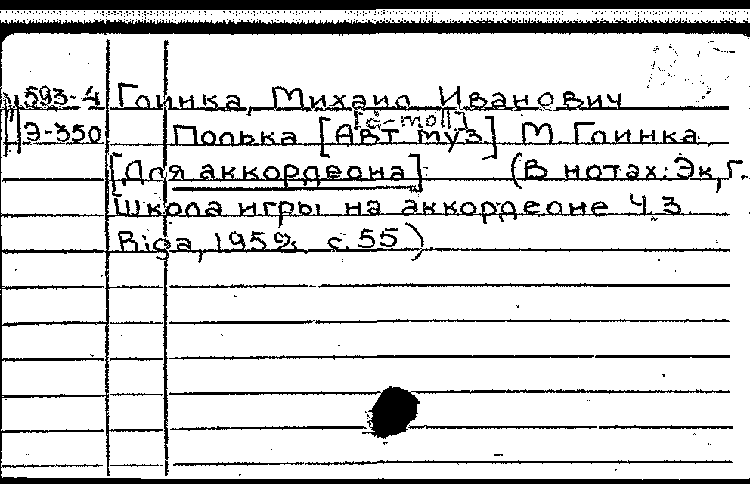 593-4 Глинка, Михаил Иванович
[c-moll]
Э-350 Полька [Авт муз.] М Глинка.
[Для аккордеона] (В нотах: Эк, Г.
Школа игры на аккордеоне Ч. 3.
Riga, 1952. с. 55)